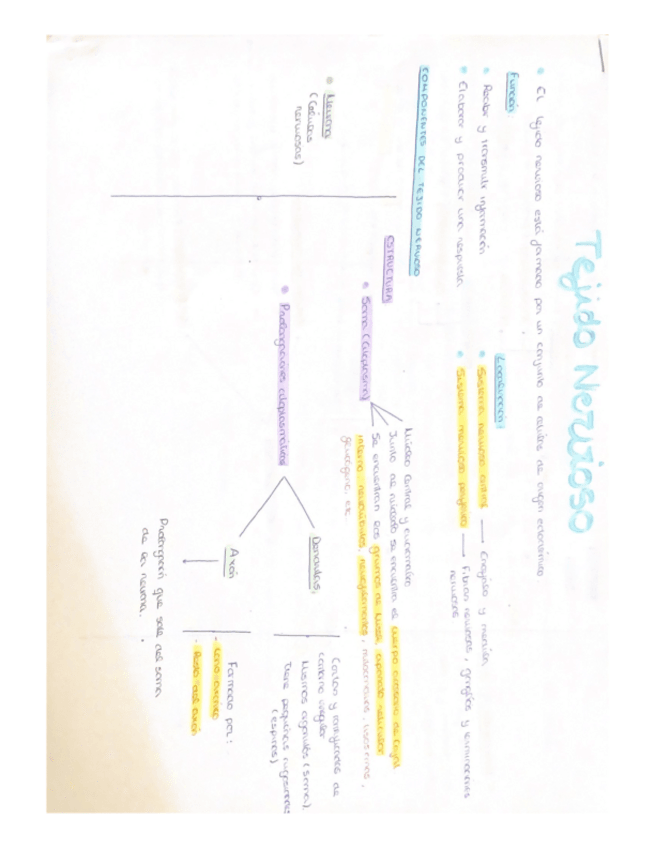 Tejido Nervioso
• El tejido nervioso está formado por un conjunto de células de origen ectodérmico
Función
• Recibir y transmitir información
• Elaborar y producir una respuesta
Localización:
• Sistema nervioso central → Encéfalo y médula
• Sistema nervioso periférico → Fibras nerviosas, ganglios y terminaciones
nerviosas
COMPONENTES DEL TEJIDO NERVIOSO
• Neurona
(Células
nerviosas)
ESTRUCTURA
• Soma (Citoplasma)
Núcleo central y eucromático
Junto al nucleolo se encuentra el cuerpo accesorio de Cajal
Se encuentran los grumos de Nissl, aparato reticular
interno, neurotúbulos, neurofilamentos, mitocondrias, lisosomas,
etc
• Prolongaciones citoplasmáticas
Dendritas:
Cortas y
contorno irregular
Mismos orgánulos (soma).
Tiene pequeñas rugosidades
(espinas)
Axón
Prolongación que sale del soma
de la neurona.
Formado por:
- Cono axónico
- Resto del axón